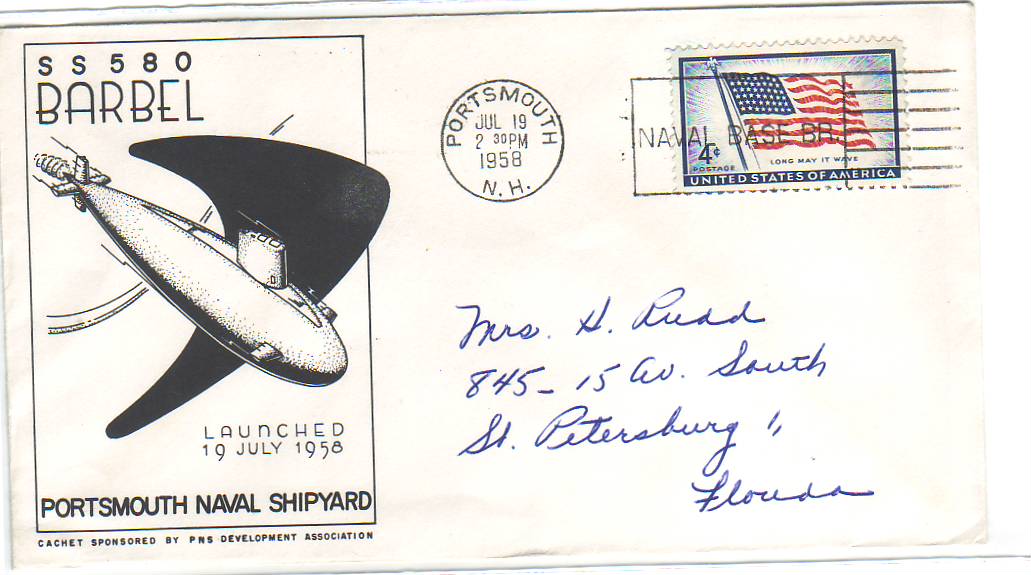 SS580
BARBEL
LAUNCHED
19 JULY 1958
PORTSMOUTH NAVAL SHIPYARD
CACHET SPONSORED BY PNS DEVELOPMENT ASSOCIATION
PORTSMOUTH
JUL 19
2 30 PM
1958
N.H.
NAVAL BASE BR.
4¢
POSTAGE
LONG MAY IT WAVE
UNITED STATES OF AMERICA
Mrs. H. Rudd
845-15 Av. South
St. Petersburg 11,
Florida